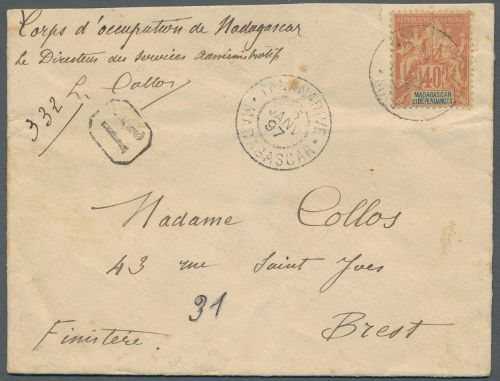 Corps d'occupation de Madagascar
Le Directeur des services administratifs
L. Collos
332
R
TANANARIVE
JANV
97
MADAGASCAR
REPUBLIQUE FRANÇAISE
40
MADAGASCAR
ET DÉPENDANCES
Madame Collos
43 rue Saint Yves
31
Brest
Finistère.